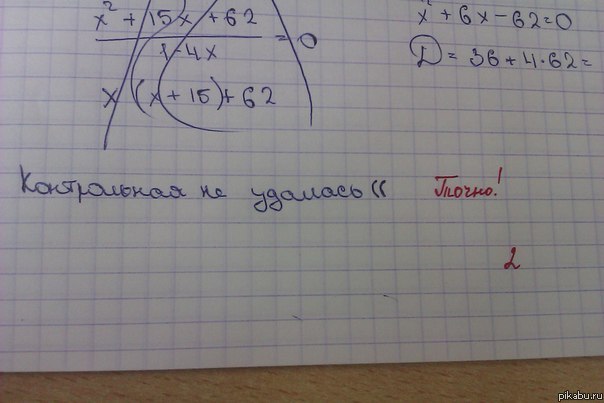 x² + 15x + 62
1-4x
= 0
x (x + 15) + 62
x² + 6x - 62 = 0
D = 36 + 4·62 =
Контрольная не удалась((
Точно!
2
pikabu.ru